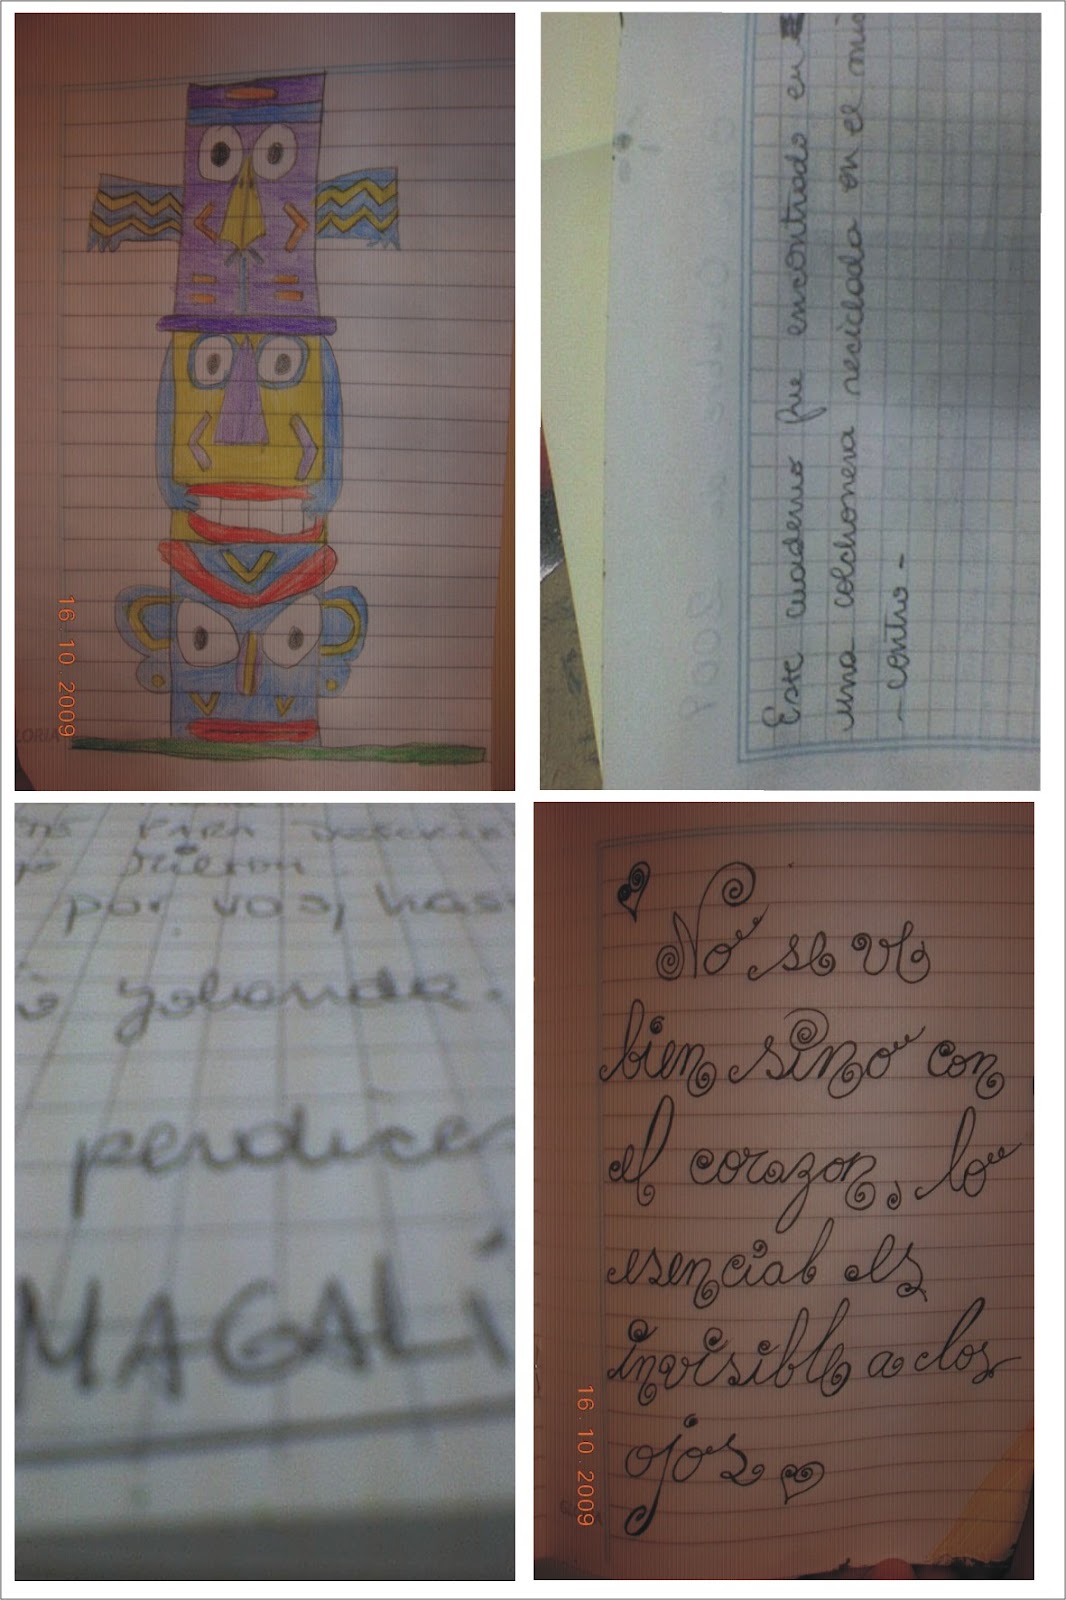 16.10.2009
LORIA
Este cuaderno fue encontrado en
una colchonera reciclada en el mic
-contro-
2009
PARA
por vos, has
yolanda.
perdices
MAGALÍ
No se ve
bien sino con
el corazon, lo
esencial es
invisible a los
ojos
16.10.2009